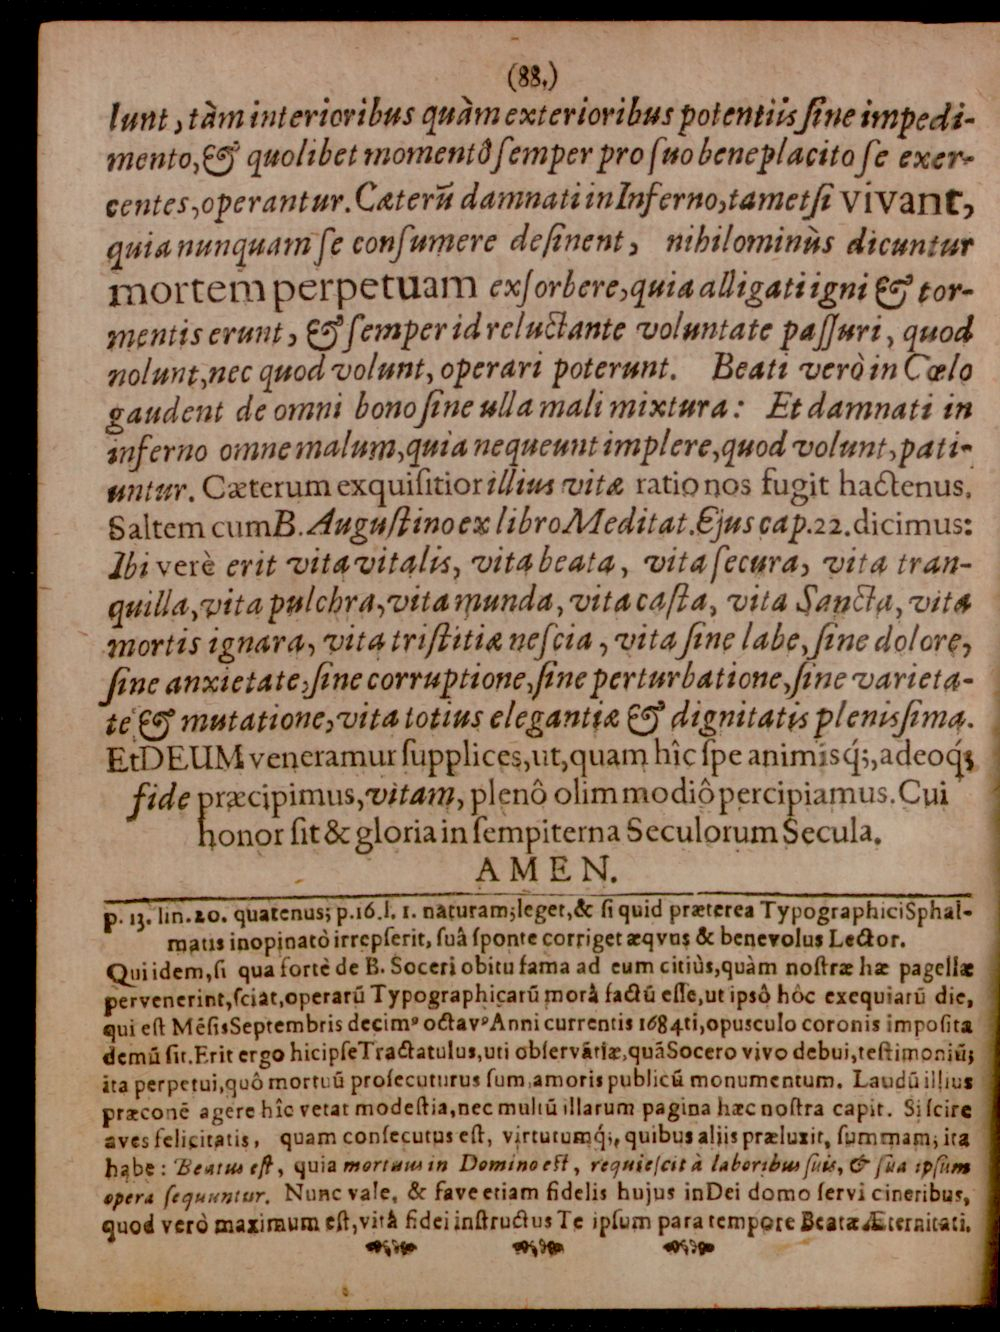 (88.)
lunt, tàm interioribus quàm exterioribus potentiis ſine impedi-
mento, & quolibet momentô ſemper pro ſuo beneplacito ſe exer-
centes, operantur. Cæterũ damnati in Inferno, tametſi vivant,
quia nunquam ſe conſumere deſinent, nihilominùs dicuntur
mortem perpetuam exſorbere, quia alligati igni & tor-
mentis erunt, & ſemper id reluctante voluntate paſſuri, quod
nolunt, nec quod volunt, operari poterunt. Beati verò in Cœlo
gaudent de omni bono ſine ulla mali mixtura: Et damnati in
inferno omne malum, quia nequeunt implere, quod volunt, pati-
untur. Cæterum exquiſitior illius vitæ ratio nos fugit hactenus.
Saltem cum B. Auguſtino ex libro Meditat. Ejus cap. 22. dicimus:
Ibi verè erit vita vitalis, vita beata, vita ſecura, vita tran-
quilla, vita pulchra, vita munda, vita caſta, vita Sancta, vita
mortis ignara, vita triſtitiæ neſcia, vita ſine labe, ſine dolore,
ſine anxietate, ſine corruptione, ſine perturbatione, ſine varieta-
te & mutatione, vita totius elegantiæ & dignitatis plenisſima.
Et DEUM veneramur ſupplices, ut, quam hîc ſpe animisq́;, adeoq́;
fide præcipimus, vitam, plenô olim modiô percipiamus. Cui
honor ſit & gloria in ſempiterna Seculorum Secula.
AMEN.
p. 13. lin. 20. quatenus; p. 16. l. 1. naturam; leget, & ſi quid præterea Typographici Sphal-
matis inopinatò irrepſerit, ſuâ ſponte corriget æqvus & benevolus Lector.
Qui idem, ſi qua fortè de B. Soceri obitu fama ad eum citiùs, quàm noſtræ hæ pagellæ
pervenerint, ſciat, operarũ Typographicarũ morâ factũ eſſe, ut ipsô hôc exequiarũ die,
qui eſt Mẽſis Septembris decimꝰ octavꝰ Anni currentis 1684ti, opusculo coronis impoſita
demũ ſit. Erit ergo hic ipſe Tractatulus, uti obſervãtiæ, quã Socero vivo debui, teſtimoniũ;
ita perpetui, quô mortuũ proſecuturus ſum, amoris publicũ monumentum. Laudũ illius
præconẽ agere hîc vetat modeſtia, nec multũ illarum pagina hæc noſtra capit. Si ſcire
aves felicitatis, quam conſecutus eſt, virtutumq́;, quibus aliis præluxit, ſummam; ita
habe: Beatus eſt, quia mortuus in Domino eſt, requieſcit à laboribus ſuis, & ſua ipſum
opera ſequuntur. Nunc vale, & fave etiam fidelis hujus in Dei domo ſervi cineribus,
quod verò maximum eſt, vitâ fidei inſtructus Te ipſum para tempore Beatæ Æternitati.